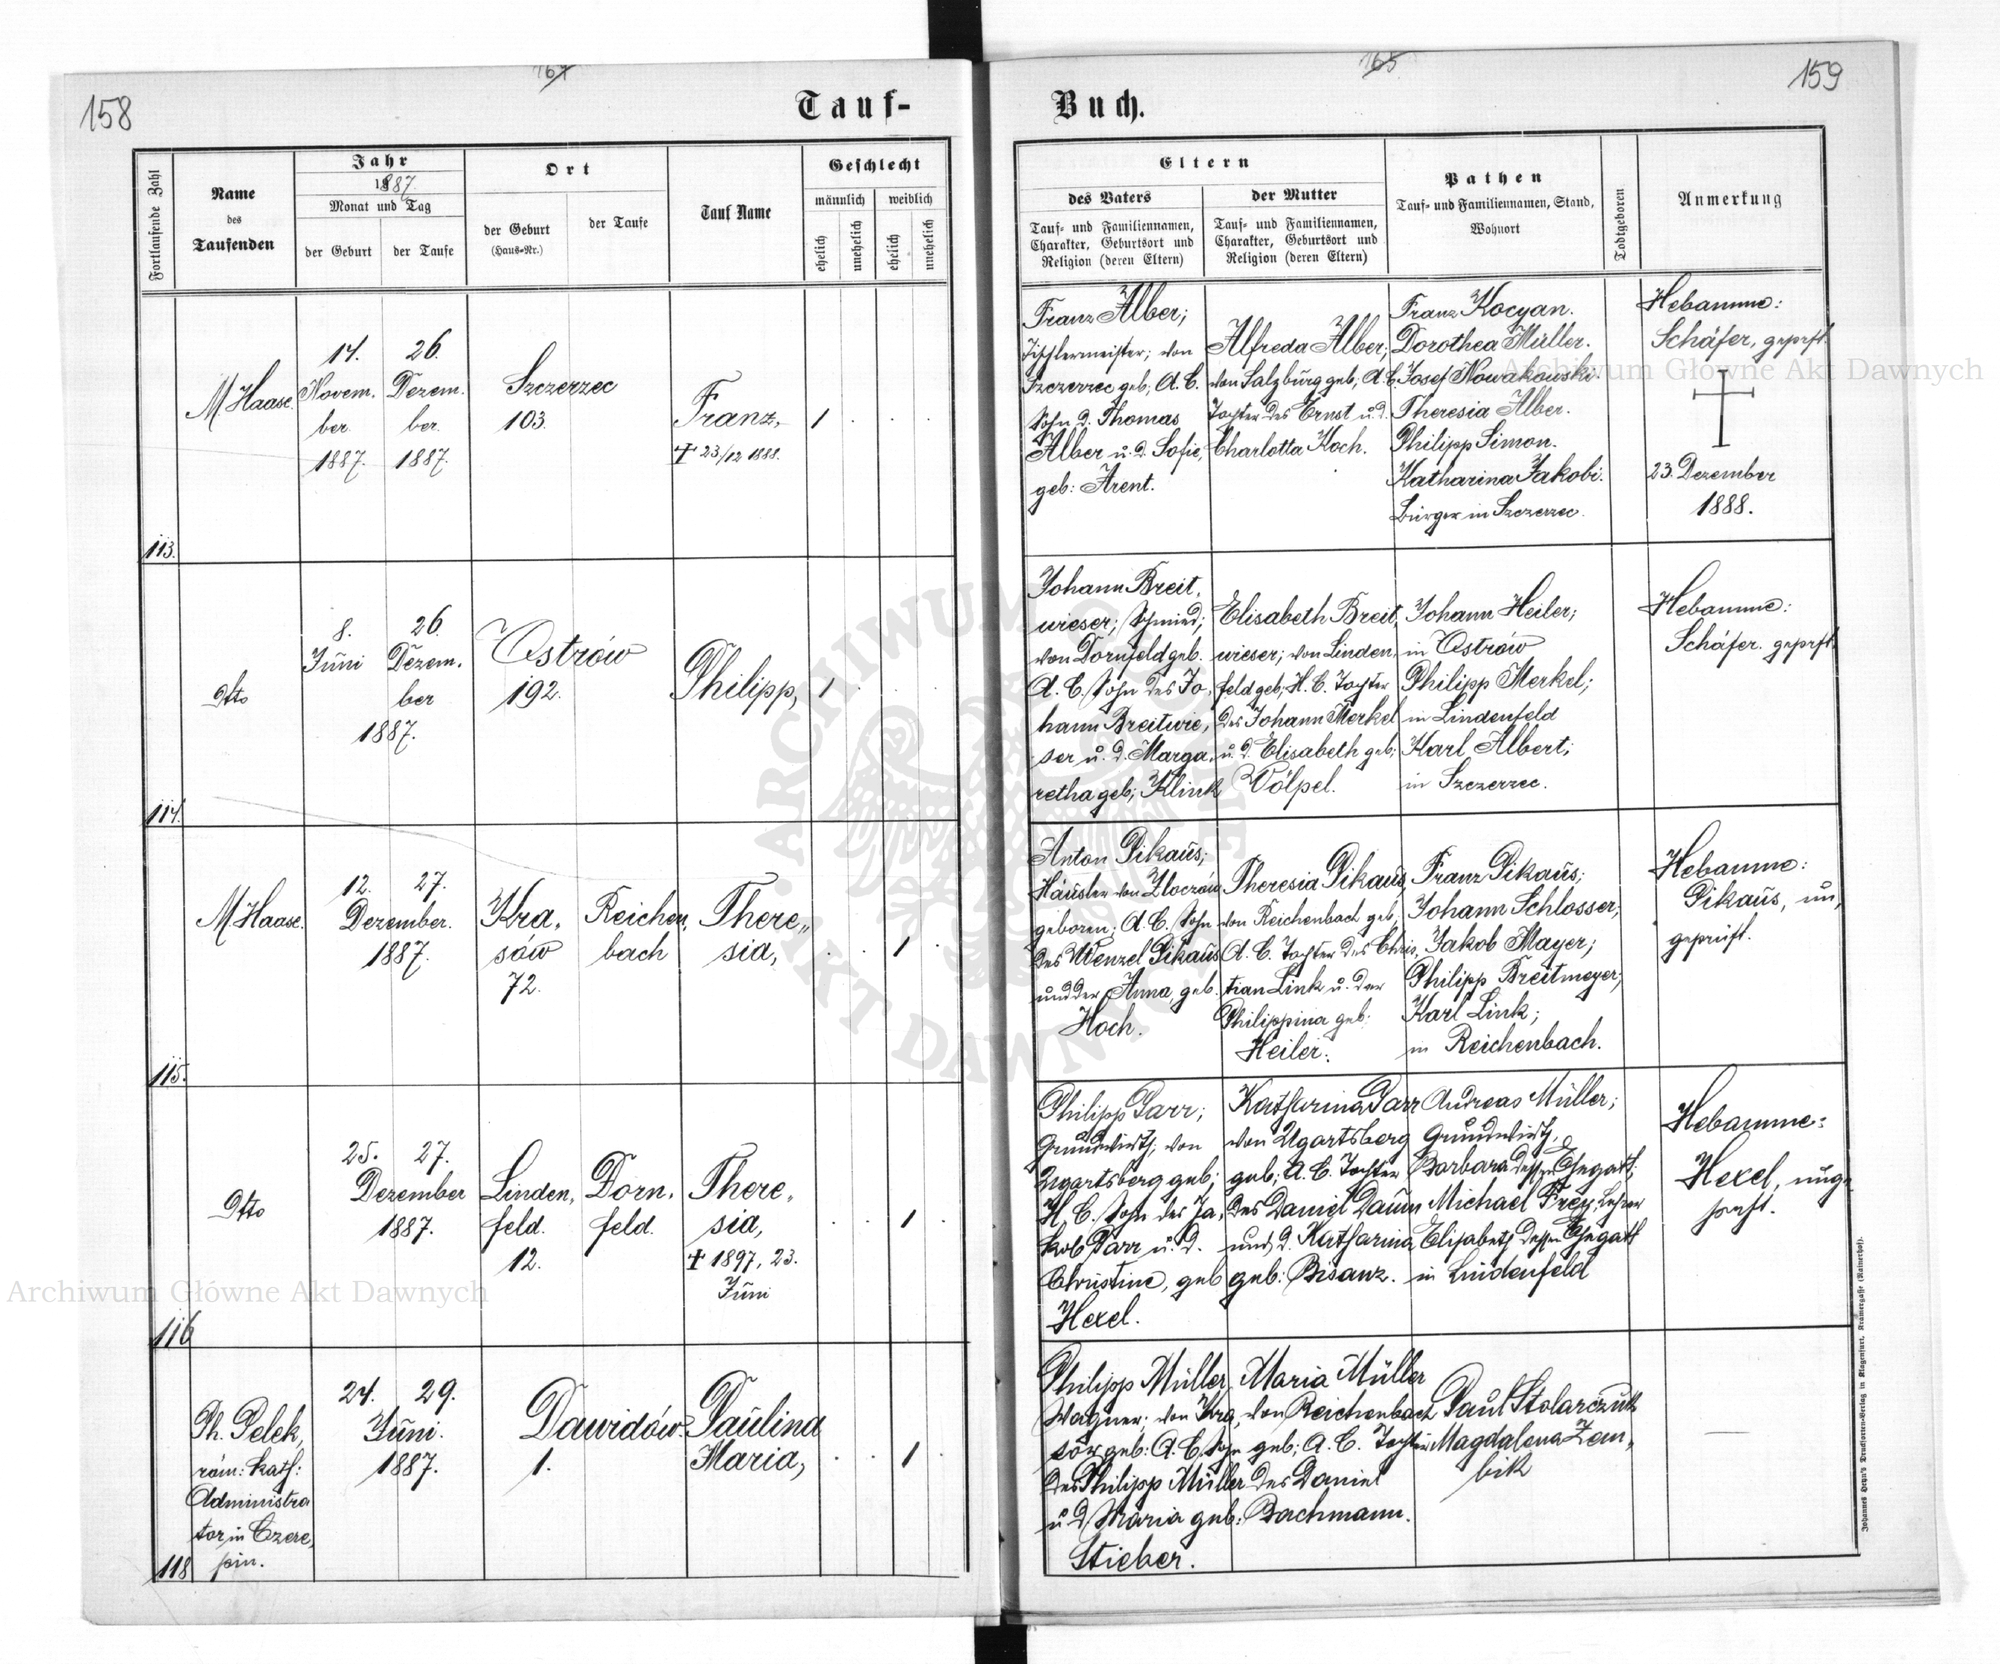 158
164
Tauf-
Fortlaufende Zahl
Name
des
Taufenden
Jahr
1887.
Monat und Tag
der Geburt
der Taufe
Ort
der Geburt
(Haus-Nr.)
der Taufe
Tauf Name
Geschlecht
männlich
weiblich
ehelich
unehelich
ehelich
unehelich
113.
M. Haase.
14.
Novem,
ber
1887.
26.
Dezem,
ber
1887.
Szczerzec
103.
Franz,
† 23/12 1888.
1
114.
dtto
8.
Juni
26.
Dezem,
ber
1887.
Ostrów
192.
Philipp,
1
115.
M. Haase.
12. 27.
Dezember.
1887.
Kra,
sów
72.
Reichen,
bach
There,,
sia,
1
116
dtto
25. 27.
Dezember
1887.
Linden,
feld.
12.
Dorn,
feld.
There,
sia,
† 1897, 23.
Juni
1
118
Ph. Pelek,
röm: kath:
Administra
tor in Czere,
pin.
24. 29.
Juni.
1887.
Dawidów
1.
Paulina
Maria,
1
165
159
Buch.
Eltern
des Vaters
Tauf- und Familiennamen,
Charakter, Geburtsort und
Religion (deren Eltern)
der Mutter
Tauf- und Familiennamen,
Charakter, Geburtsort und
Religion (deren Eltern)
Pathen
Tauf- und Familiennamen, Stand,
Wohnort
Todtgeboren
Anmerkung
Franz Alber;
Tischlermeister; von
Szczerzec geb; A. C.
Sohn d. Thomas
Alber u. d. Sofie,
geb: Arent.
Alfreda Alber;
von Salzburg geb; A. C.
Tochter des Ernst u. d.
Charlotta Koch.
Franz Kocyan.
Dorothea Müller.
Josef Nowakowski.
Theresia Alber.
Philipp Simon.
Katharina Jakobi.
Bürger in Szczerzec.
Hebamme:
Schäfer, geprft.
†
23. Dezember
1888.
Johann Breit,
wieser; Schmied;
von Dornfeld geb.
A. C. Sohn des Jo,
hann Breitwie,
ser u. d. Marga,
retha geb; Klink
Elisabeth Breit,
wieser; von Linden,
feld geb; H. C. Tochter
des Johann Merkel
u. d. Elisabeth geb;
Völpel.
Johann Heiler;
in Ostrów
Philipp Merkel;
in Lindenfeld
Karl Albert;
in Szczerzec.
Hebamme:
Schäfer. geprft.
Anton Pikaus;
Häusler von Zloczów
geboren; A. C. Sohn
des Wenzel Pikaus
und der Anna, geb.
Hoch.
Theresia Pikaus,
von Reichenbach geb;
A. C. Tochter des Chris,
tian Link u. der
Philippina geb:
Heiler.
Franz Pikaus;
Johann Schlosser;
Jakob Mayer;
Philipp Breitmeyer;
Karl Link;
in Reichenbach.
Hebamme:
Pikaus, un,
geprüft.
Philipp Parr;
Grundwirth; von
Ugartsberg geb;
H. C. Sohn des Ja,
kob Parr u. d.
Christine, geb
Hexel.
Katharina Parr
von Ugartsberg
geb; A. C. Tochter
des Daniel Daum
und d. Katharina
geb: Bisanz.
Andreas Müller;
Grundwirth,
Barbara dessen Ehegatt;
Michael Frey, Lehrer
Elisabeth dessen Ehegatt
in Lindenfeld
Hebamme:
Hexel, unge
prft.
Philipp Müller
Wagner: von Kra,
sów geb: A. C. Sohn
des Philipp Müller
u. d. Maria geb:
Stieber.
Maria Müller
von Reichenbach
geb; A. C. Tochter
des Daniel
Bachmann.
Paul Stolarczuk
Magdalena Zem,
bik
Johannes Heyn's Drucksorten-Verlag in Klagenfurt, Kramergasse (Rainerhof).
Archiwum Główne Akt Dawnych
Archiwum Główne Akt Dawnych